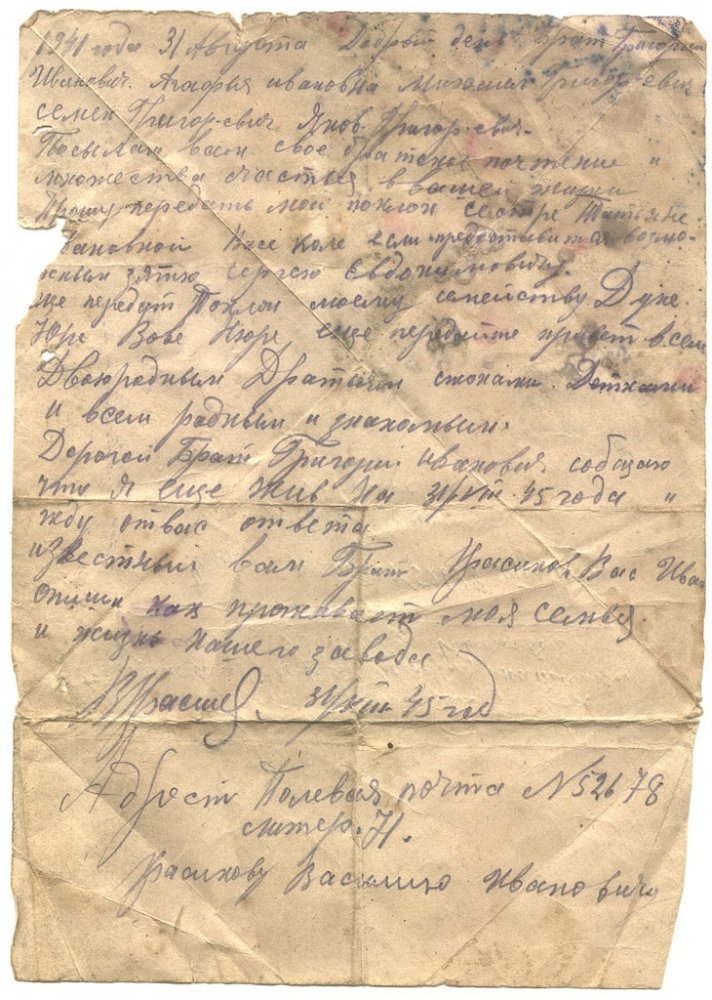 1941 года 31 Августа Добрый день Брат Григорий
Иванович. Агафья ивановна Михаил Григор-евич
семен Григор-евич Яков. Григор-евич.
Посылаю вам свое братское почтение и
множества счастья в вашей жизни
Прошу передать мой поклон сестре Татьяне
вановной Васе коле если предоставится возмо-
жным зятю Сергею Евдокимовичу.
ще передат Поклон моему семейству Дуне
Юре Вове Нюре еще передайте привет всем
Двоюродным Братьям сжонами Детками
и всем родным и знакомым.
Дорогой Брат Григорий ивановичь собщаю
что я еще жив на 31/VIII 45 года и
жду отвас ответа
известный вам Брат Красиков Вас Иван
опиши как проживает моя семья
и жизнь нашего завода
31/VIII 45 год
Адрест Полевая почта N 52678
литер. И.
Красикову Василию Ивановичу